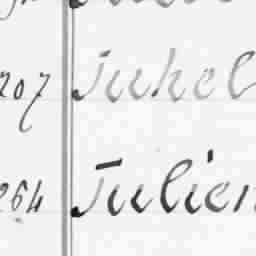 207 Juhel
264 Julien